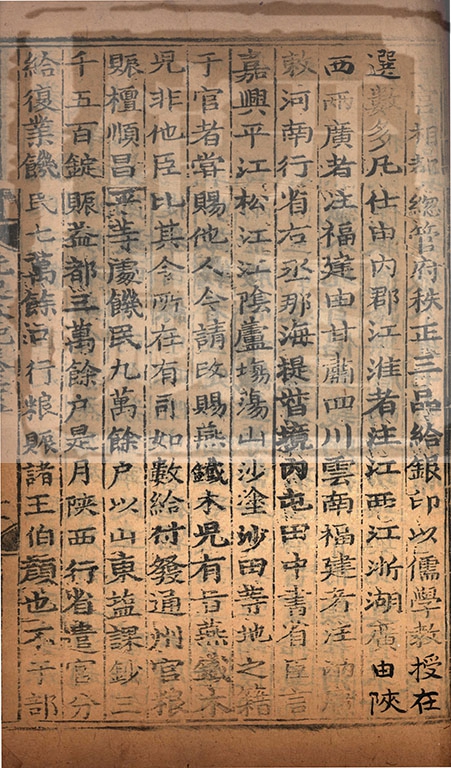 相都總管府秩正三品給銀印以儒學教授在
選數多凡仕由內郡江淮者注江西江浙湖廣由陝
西兩廣者注福建由甘肅四川雲南福建者注兩廣
敕河南行省右丞那海提督境內屯田中書省臣言
嘉興平江松江江陰蘆場蕩山沙塗沙田等地之籍
于官者嘗賜他人今請改賜燕鐵木兒有旨燕鐵木
兒非他臣比其令所在有司如數給付發通州官粮
賑檀順昌平等處饑民九萬餘户以山東鹽課鈔三
千五百錠賑益都三萬餘户是月陝西行省遣官分
給復業饑民七萬餘口行粮賑諸王伯顏也不干部